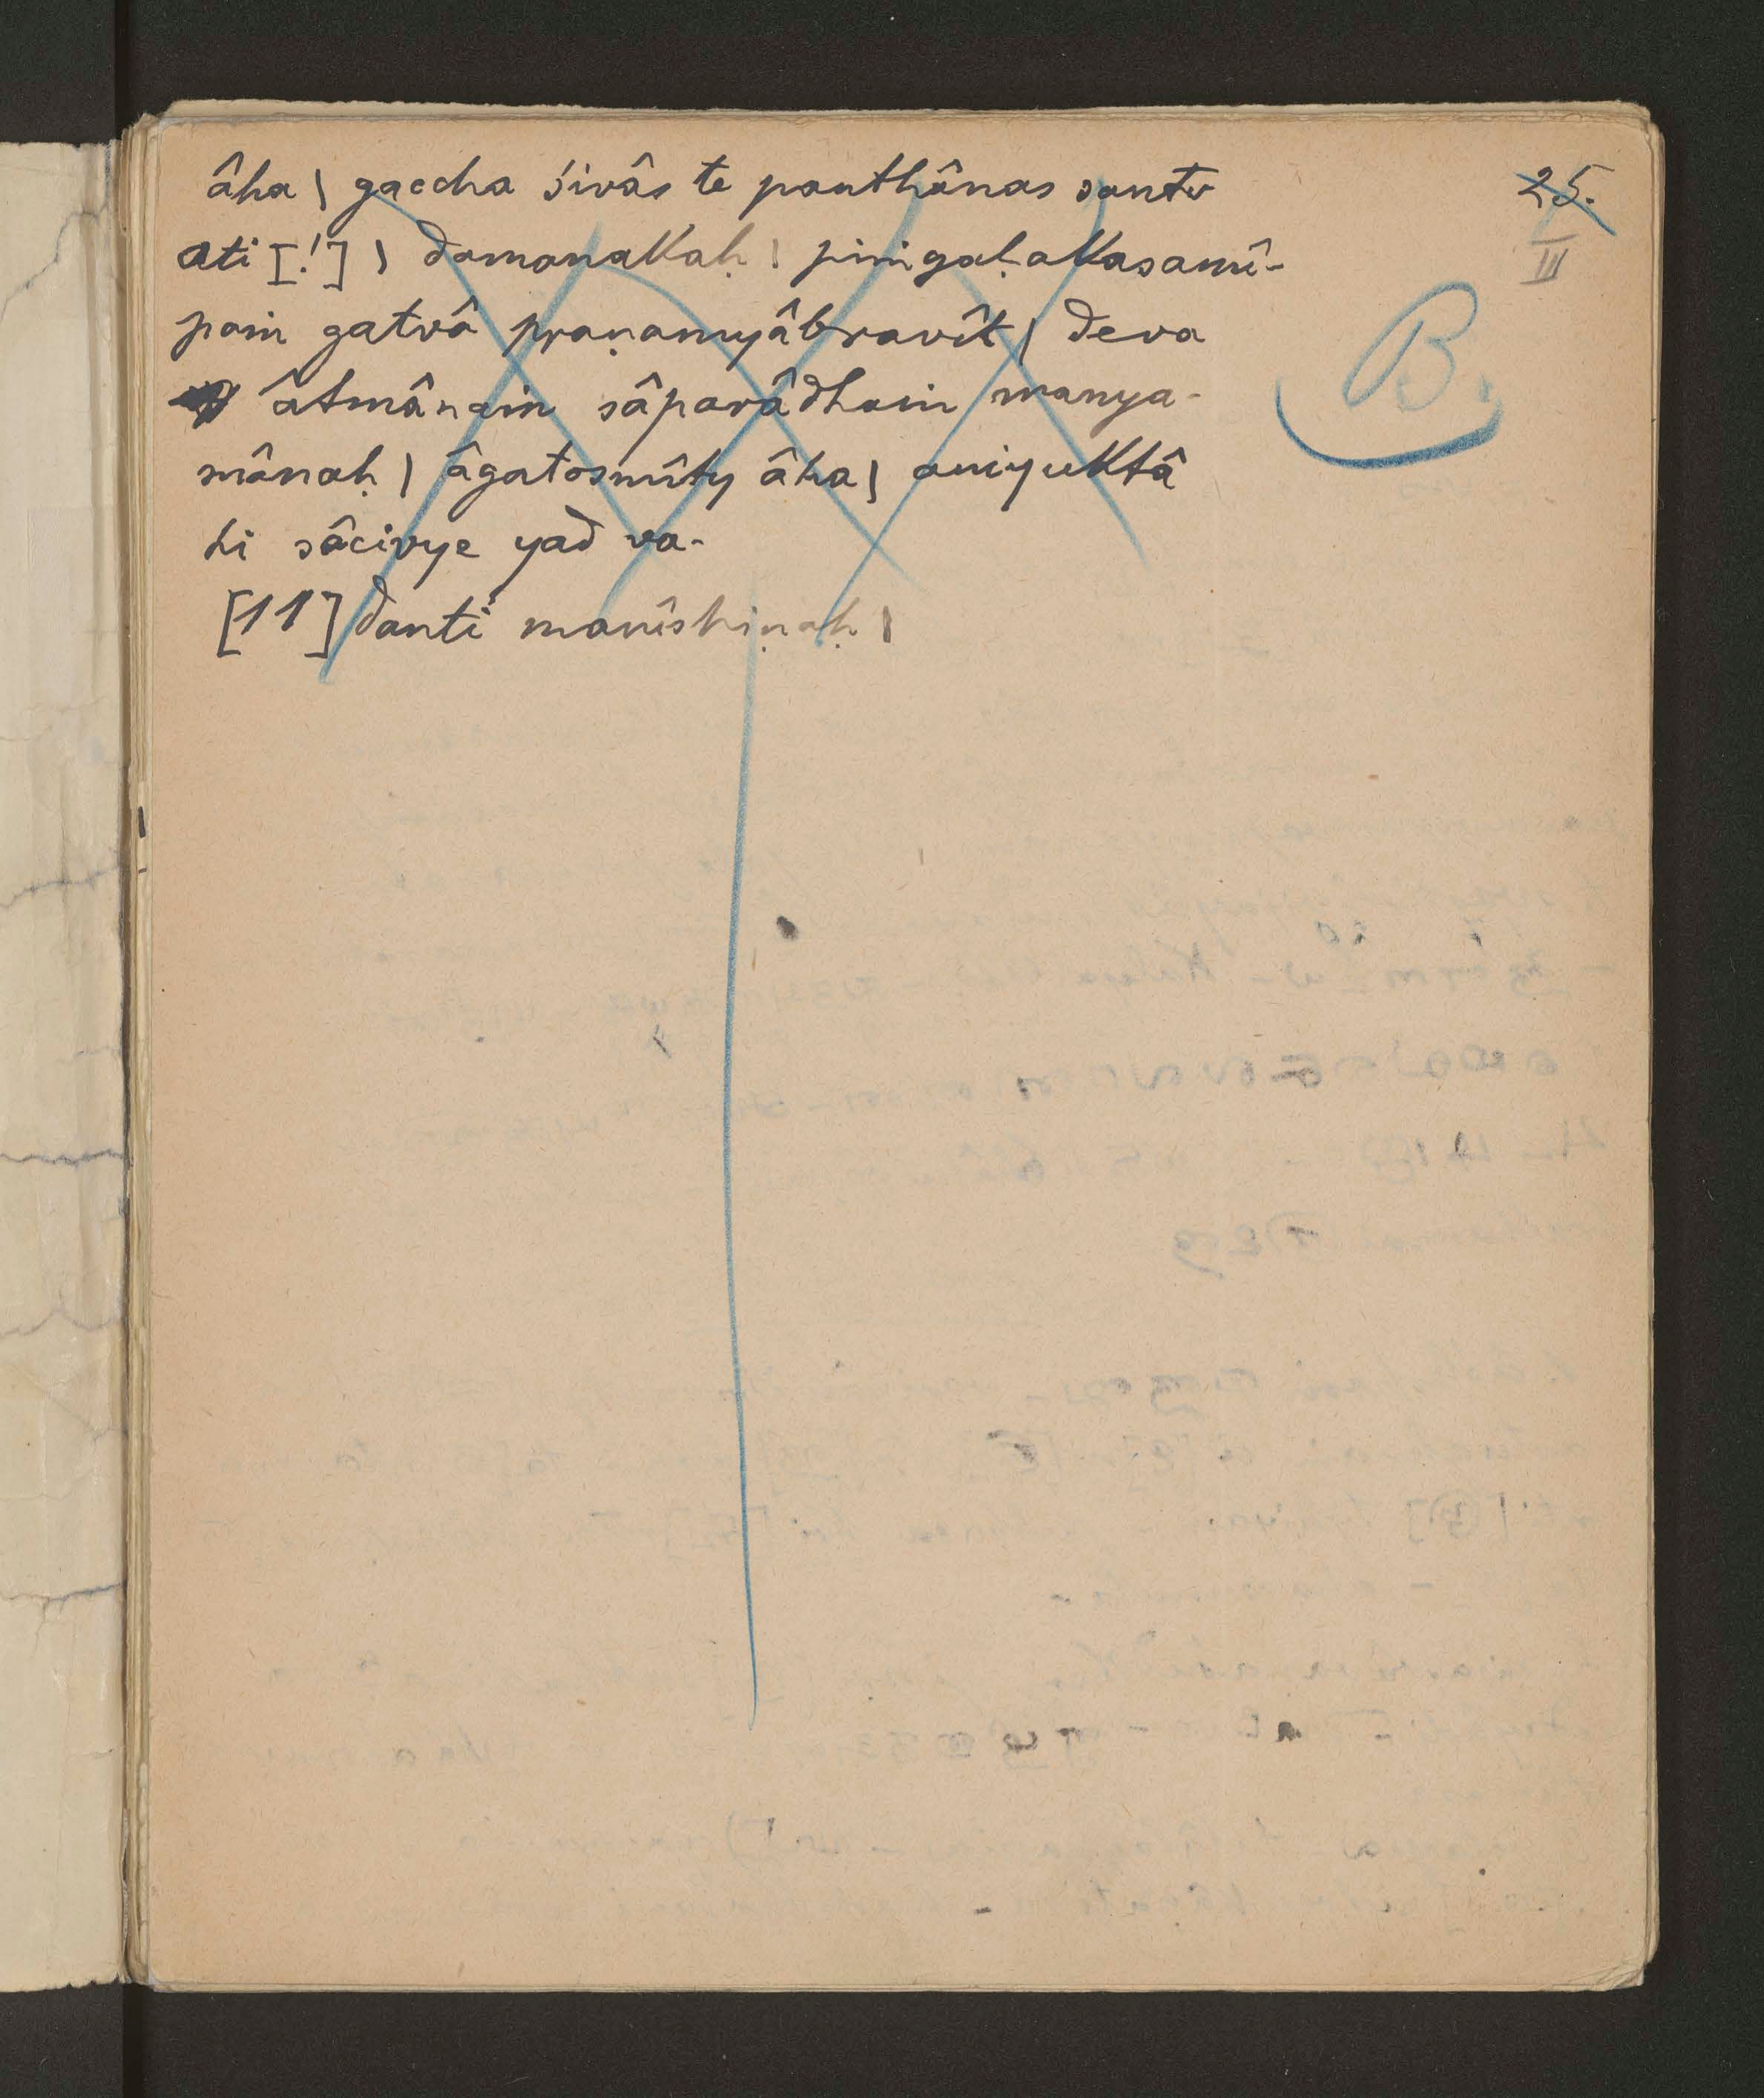 25.
III
B.
âha | gaccha śivâs te panthânas santv
ati [!] | damanakaḥ | piṁgaḷakasamî-
paṁ gatvâ praṇamyâbravît | deva
âtmânaṁ sâparâdhaṁ manya-
mânaḥ | âgatosmîty âha | aniyuktâ
hi sâcivye yad va-
[11] danti manîshiṇaḥ |